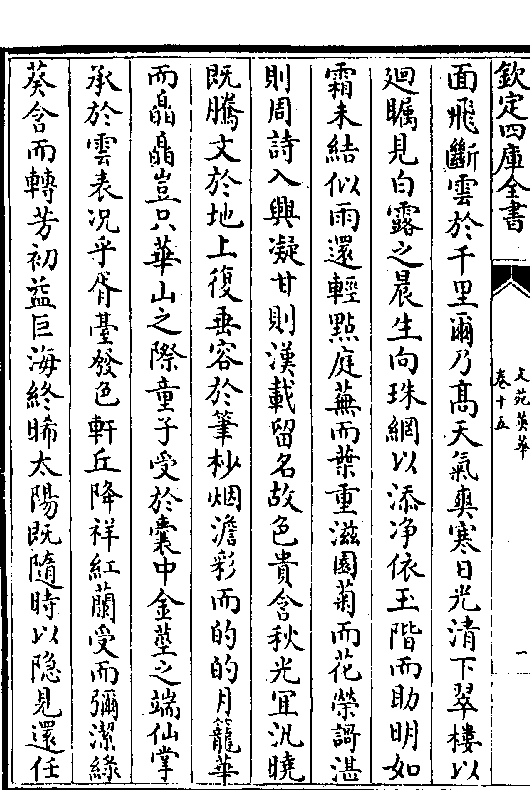 欽定四庫全書
文苑英華
卷十五
一
面飛斷雲於千里爾乃髙天氣爽寒日光清下翠樓以
廻矚見白露之晨生向珠網以添净依玉階而助明如
霜未結似雨還輕㸃庭蕪而葉重滋園菊而花榮謌湛
則周詩入興凝甘則漢載留名故色貴含秋光冝汎曉
既騰文於地上復垂容於筆杪烟澹彩而的的月籠華
而皛皛豈只華山之際童子受於囊中金莖之端仙掌
承於雲表况乎胥臺發色軒丘降祥紅蘭受而彌潔緑
葵含而轉芳初益巨海終晞太陽既隨時以隐見還任